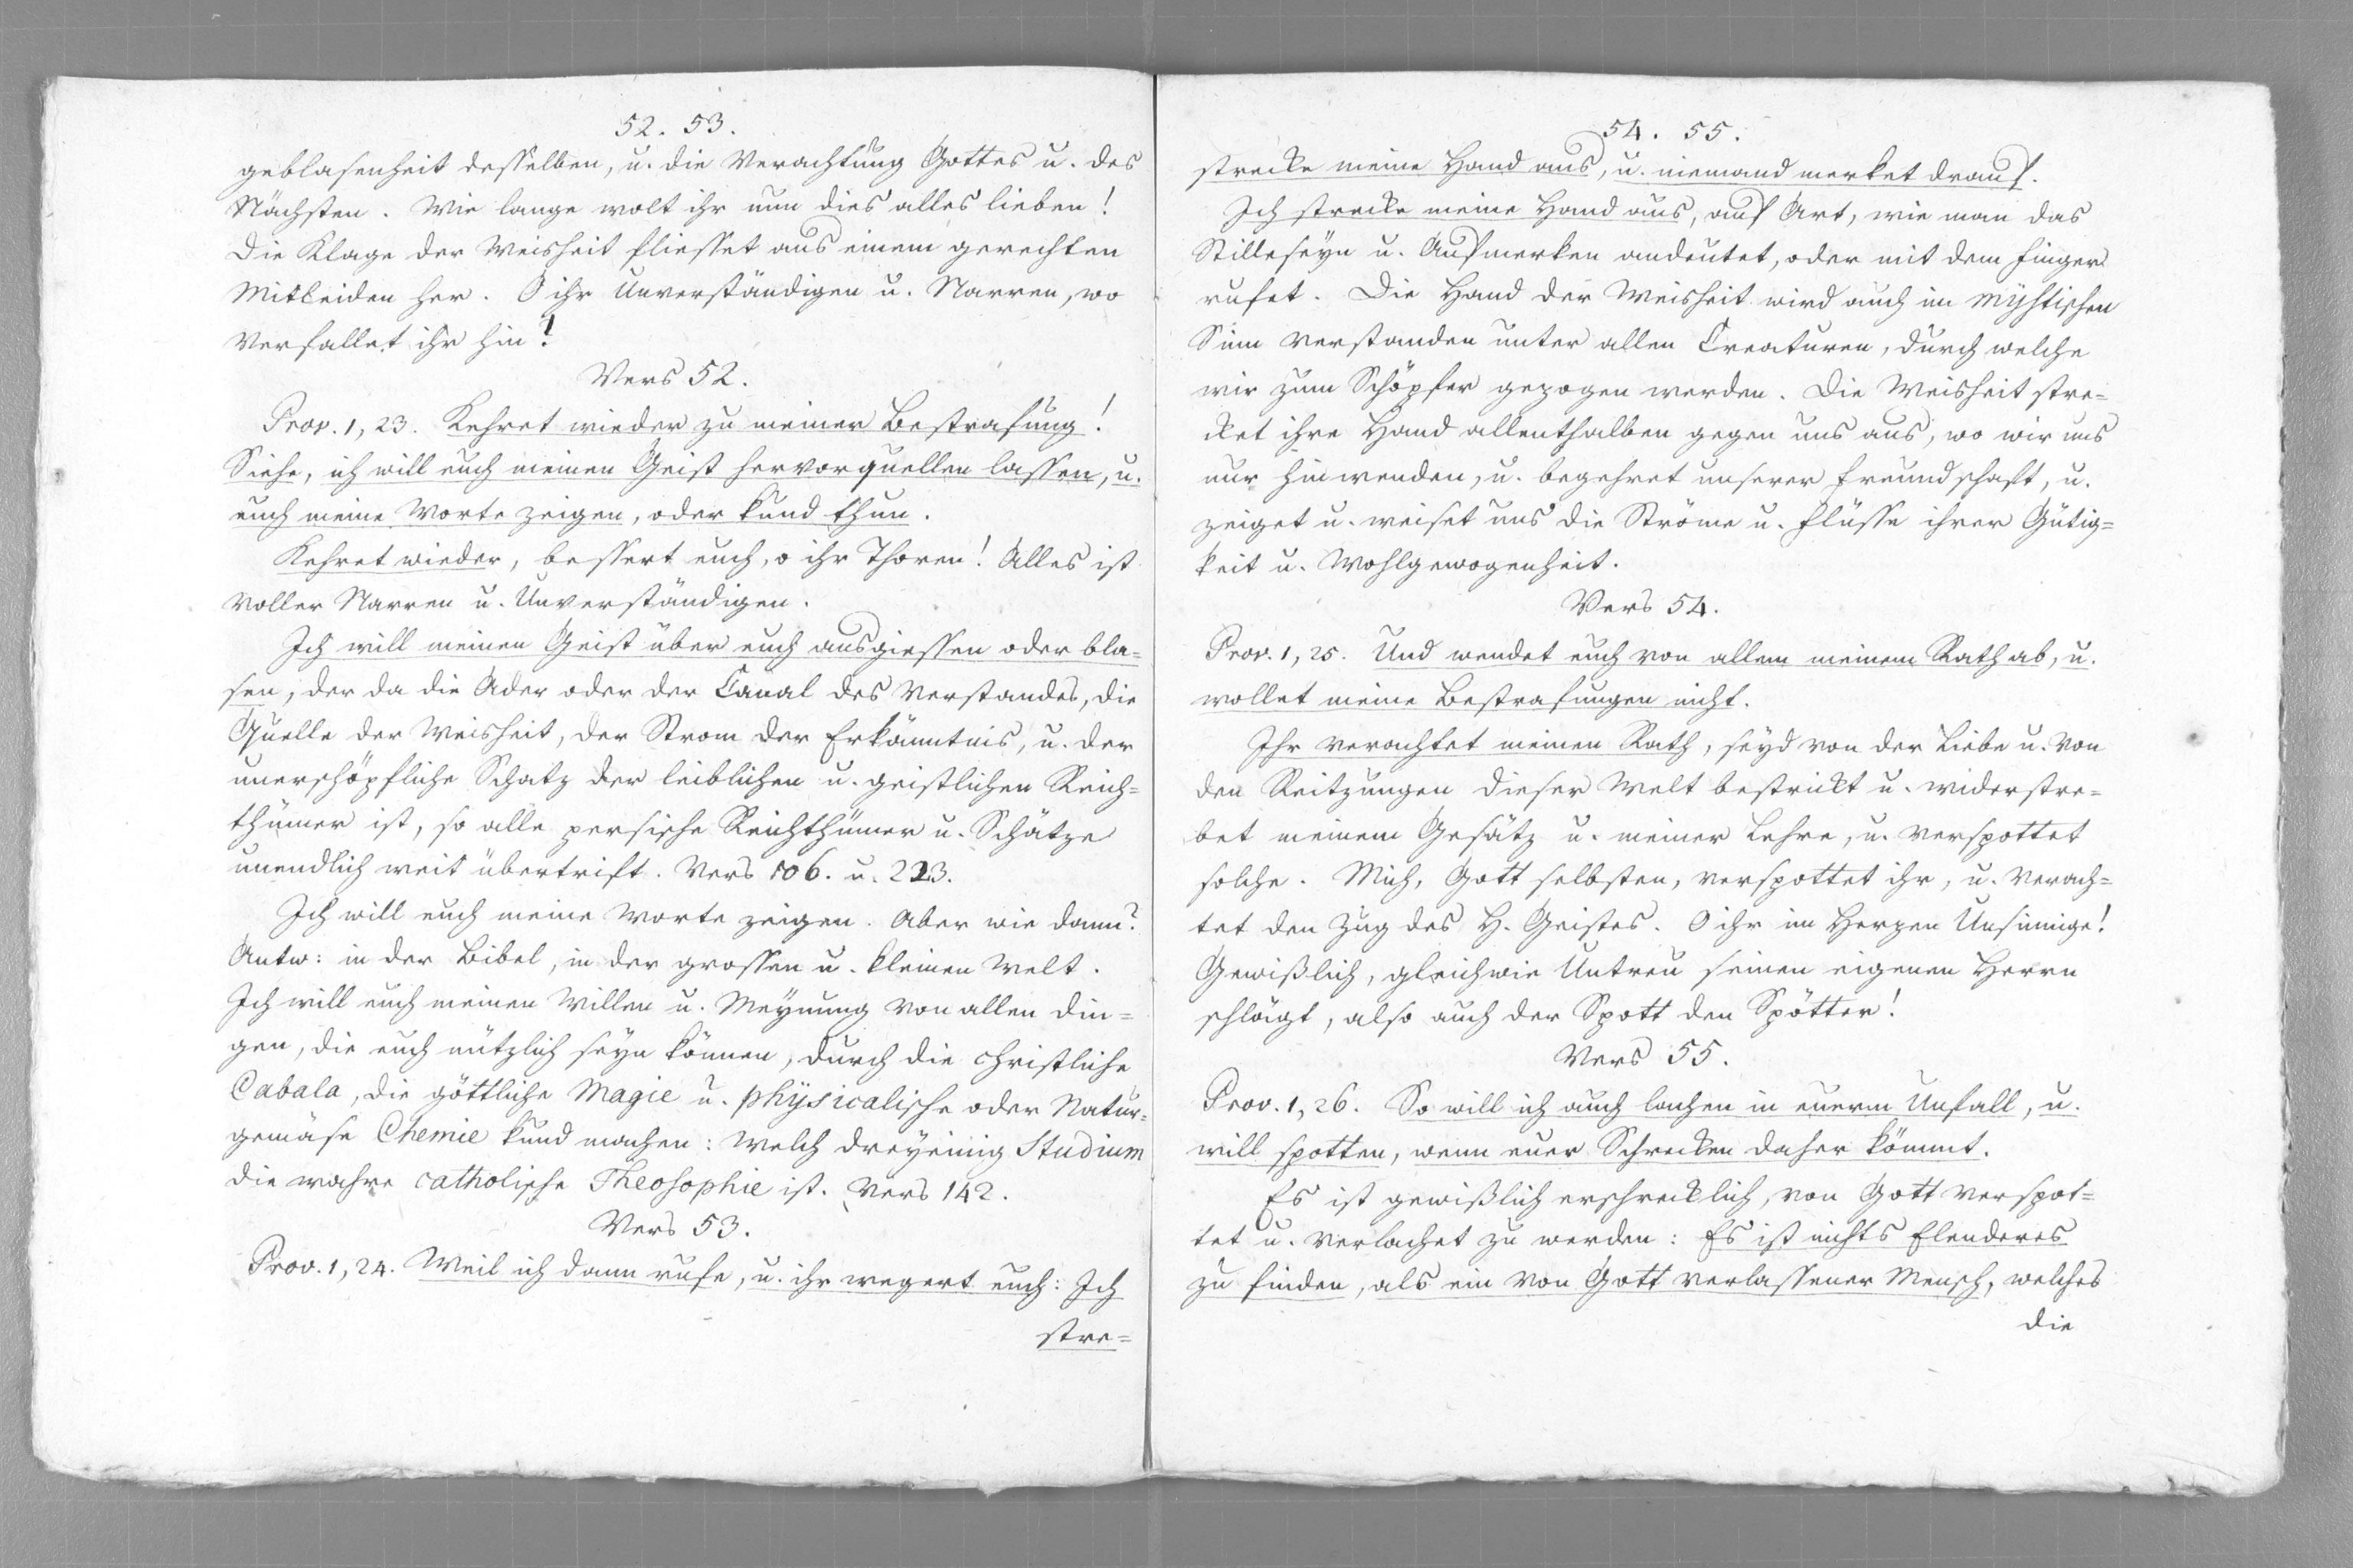 52. 53.
geblasenheit desselben, u. die Verachtung Gottes u. des
Nächsten. Wie lange wolt ihr nun dies alles lieben!
Die Klage der Weisheit fliesset aus einem gerechten
Mitleiden her. O ihr Unverständigen u. Narren, wo
verfallet ihr hin!
Vers 52.
Prov. 1, 23. Kehret wieder zu meiner Bestrafung!
Siehe, ich will euch meinen Geist hervorquellen lassen, u.
euch meine Worte zeigen, oder kund thun.
Kehret wieder, bessert euch, o ihr Thoren! Alles ist
voller Narren u. Unverständigen.
Ich will meinen Geist über euch ausgiessen oder bla=
sen, der da die Ader oder der Canal des Verstandes, die
Quelle der Weisheit, der Strom der Erkänntnis, u. der
unerschöpfliche Schatz der leiblichen u. geistlichen Reich=
thümer ist, so alle persische Reichthümer u. Schätze
unendlich weit übertrift. Vers 106. u. 223.
Ich will euch meine Worte zeigen. Aber wie dann?
Antw: in der Bibel, in der grossen u. kleinen Welt.
Ich will euch meinen Willen u. Meynung von allen Din=
gen, die euch nützlich seyn können, durch die christliche
Cabala, die göttliche Magie u. physicalische oder Natur=
gemäse Chemie kund machen: Welch dreyeinig Studium
die wahre catholische Theosophie ist. Vers 142.
Vers 53.
Prov. 1, 24. Weil ich dann rufe, u. ihr wegert euch: Ich
stre=
54. 55.
strecke meine Hand aus, u. niemand merket drauf.
Ich strecke meine Hand aus, auf Art, wie man das
Stilleseyn u. Aufmerken andeutet, oder mit dem Finger
rufet. Die Hand der Weisheit wird auch im mystischen
Sinn verstanden unter allen Creaturen, durch welche
wir zum Schöpfer gezogen werden. Die Weisheit stre=
cket ihre Hand allenthalben gegen uns aus, wo wir uns
nur hinwenden, u. begehret unserer Freundschaft, u.
zeiget u. weiset uns die Ströme u. Flüsse ihrer Gütig=
keit u. Wohlgewogenheit.
Vers 54.
Prov. 1, 25. Und wendet euch von allem meinem Rath ab, u.
wollet meine Bestrafungen nicht.
Ihr verachtet meinen Rath, seyd von der Liebe u. von
den Reitzungen dieser Welt bestrickt u. widerstre=
bet meinem Gesätz u. meiner Lehre, u. verspottet
solche. Mich, Gott selbsten, verspottet ihr, u. verach=
tet den Zug des H. Geistes. O ihr im Herzen Unsinnige!
Gewißlich, gleichwie Untreu seinen eigenen Herrn
schlägt, also auch der Spott den Spötter!
Vers 55.
Prov. 1, 26. So will ich auch lachen in euerm Unfall, u.
will spotten, wenn euer Schrecken daher kömmt.
Es ist gewißlich erschrecklich, von Gott verspot=
tet u. verlachet zu werden: Es ist nichts Elenderes
zu finden, als ein von Gott verlassener Mensch, welches
die